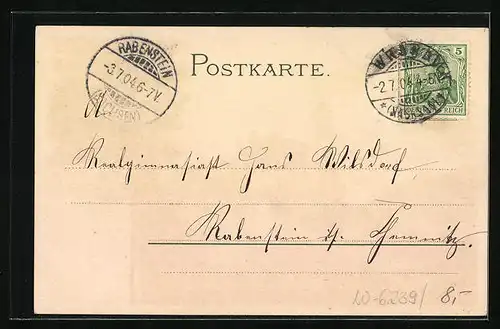 RABENSTEIN
-3.7.04.6-7V.
(SACHSEN)
POSTKARTE.
5
-2.7.04.4-5
REICH
An
Realgimnasiast Hans Wilsdorf
Rabenstein b. Chemnitz.
W-6239/ 8,-